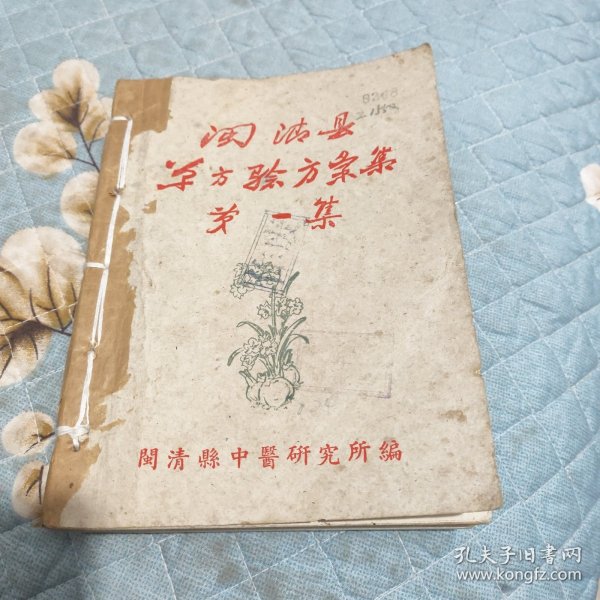 8368
闽清县
单方验方汇集
第一集
閩清縣中醫研究所編
孔夫子旧书网
www.kongfz.com